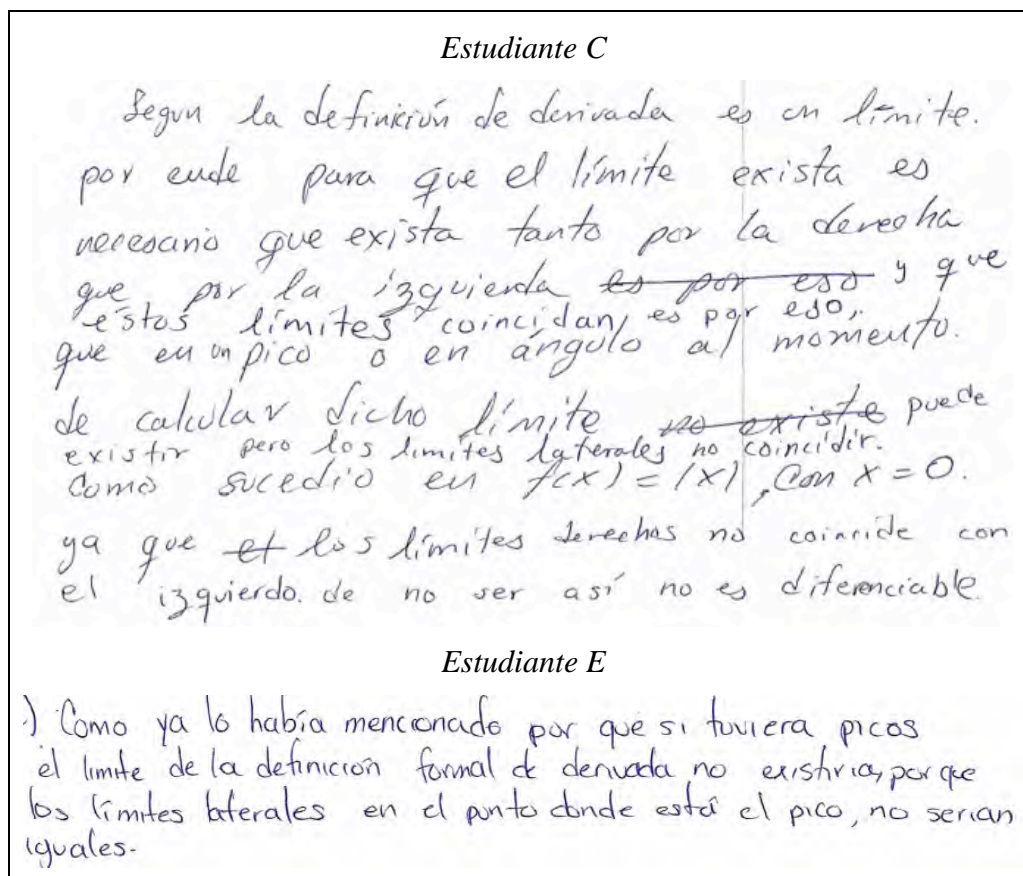 Estudiante C
Segun la definición de derivada es un límite.
por ende para que el límite exista es
necesario que exista tanto por la derecha
que por la izquierda es por eso y que
estos límites coincidan, es por eso,
que en un pico o en ángulo al momento.
de calcular dicho límite no existe puede
existir pero los limites laterales no coincidir.
Como sucedio en f(x) = |x|, Con x = 0.
ya que et los límites derechos no coincide con
el izquierdo. de no ser así no es diferenciable.
Estudiante E
.) Como ya lo había mencionado por que si tuviera picos
el limite de la definición formal de derivada no existiria, por que
los límites laterales en el punto donde está el pico, no serian
iguales.